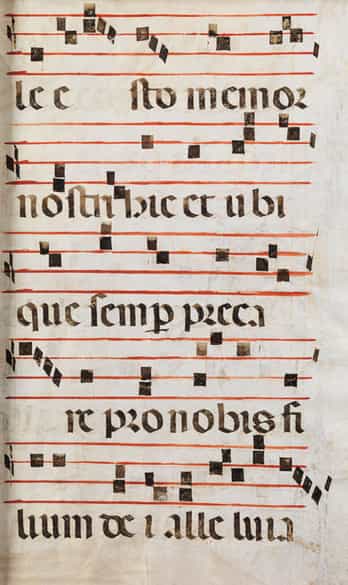 le e sto memor
nostri hic et ubi
que semꝑ preca
re pro nobis fi
lium de i alle luia